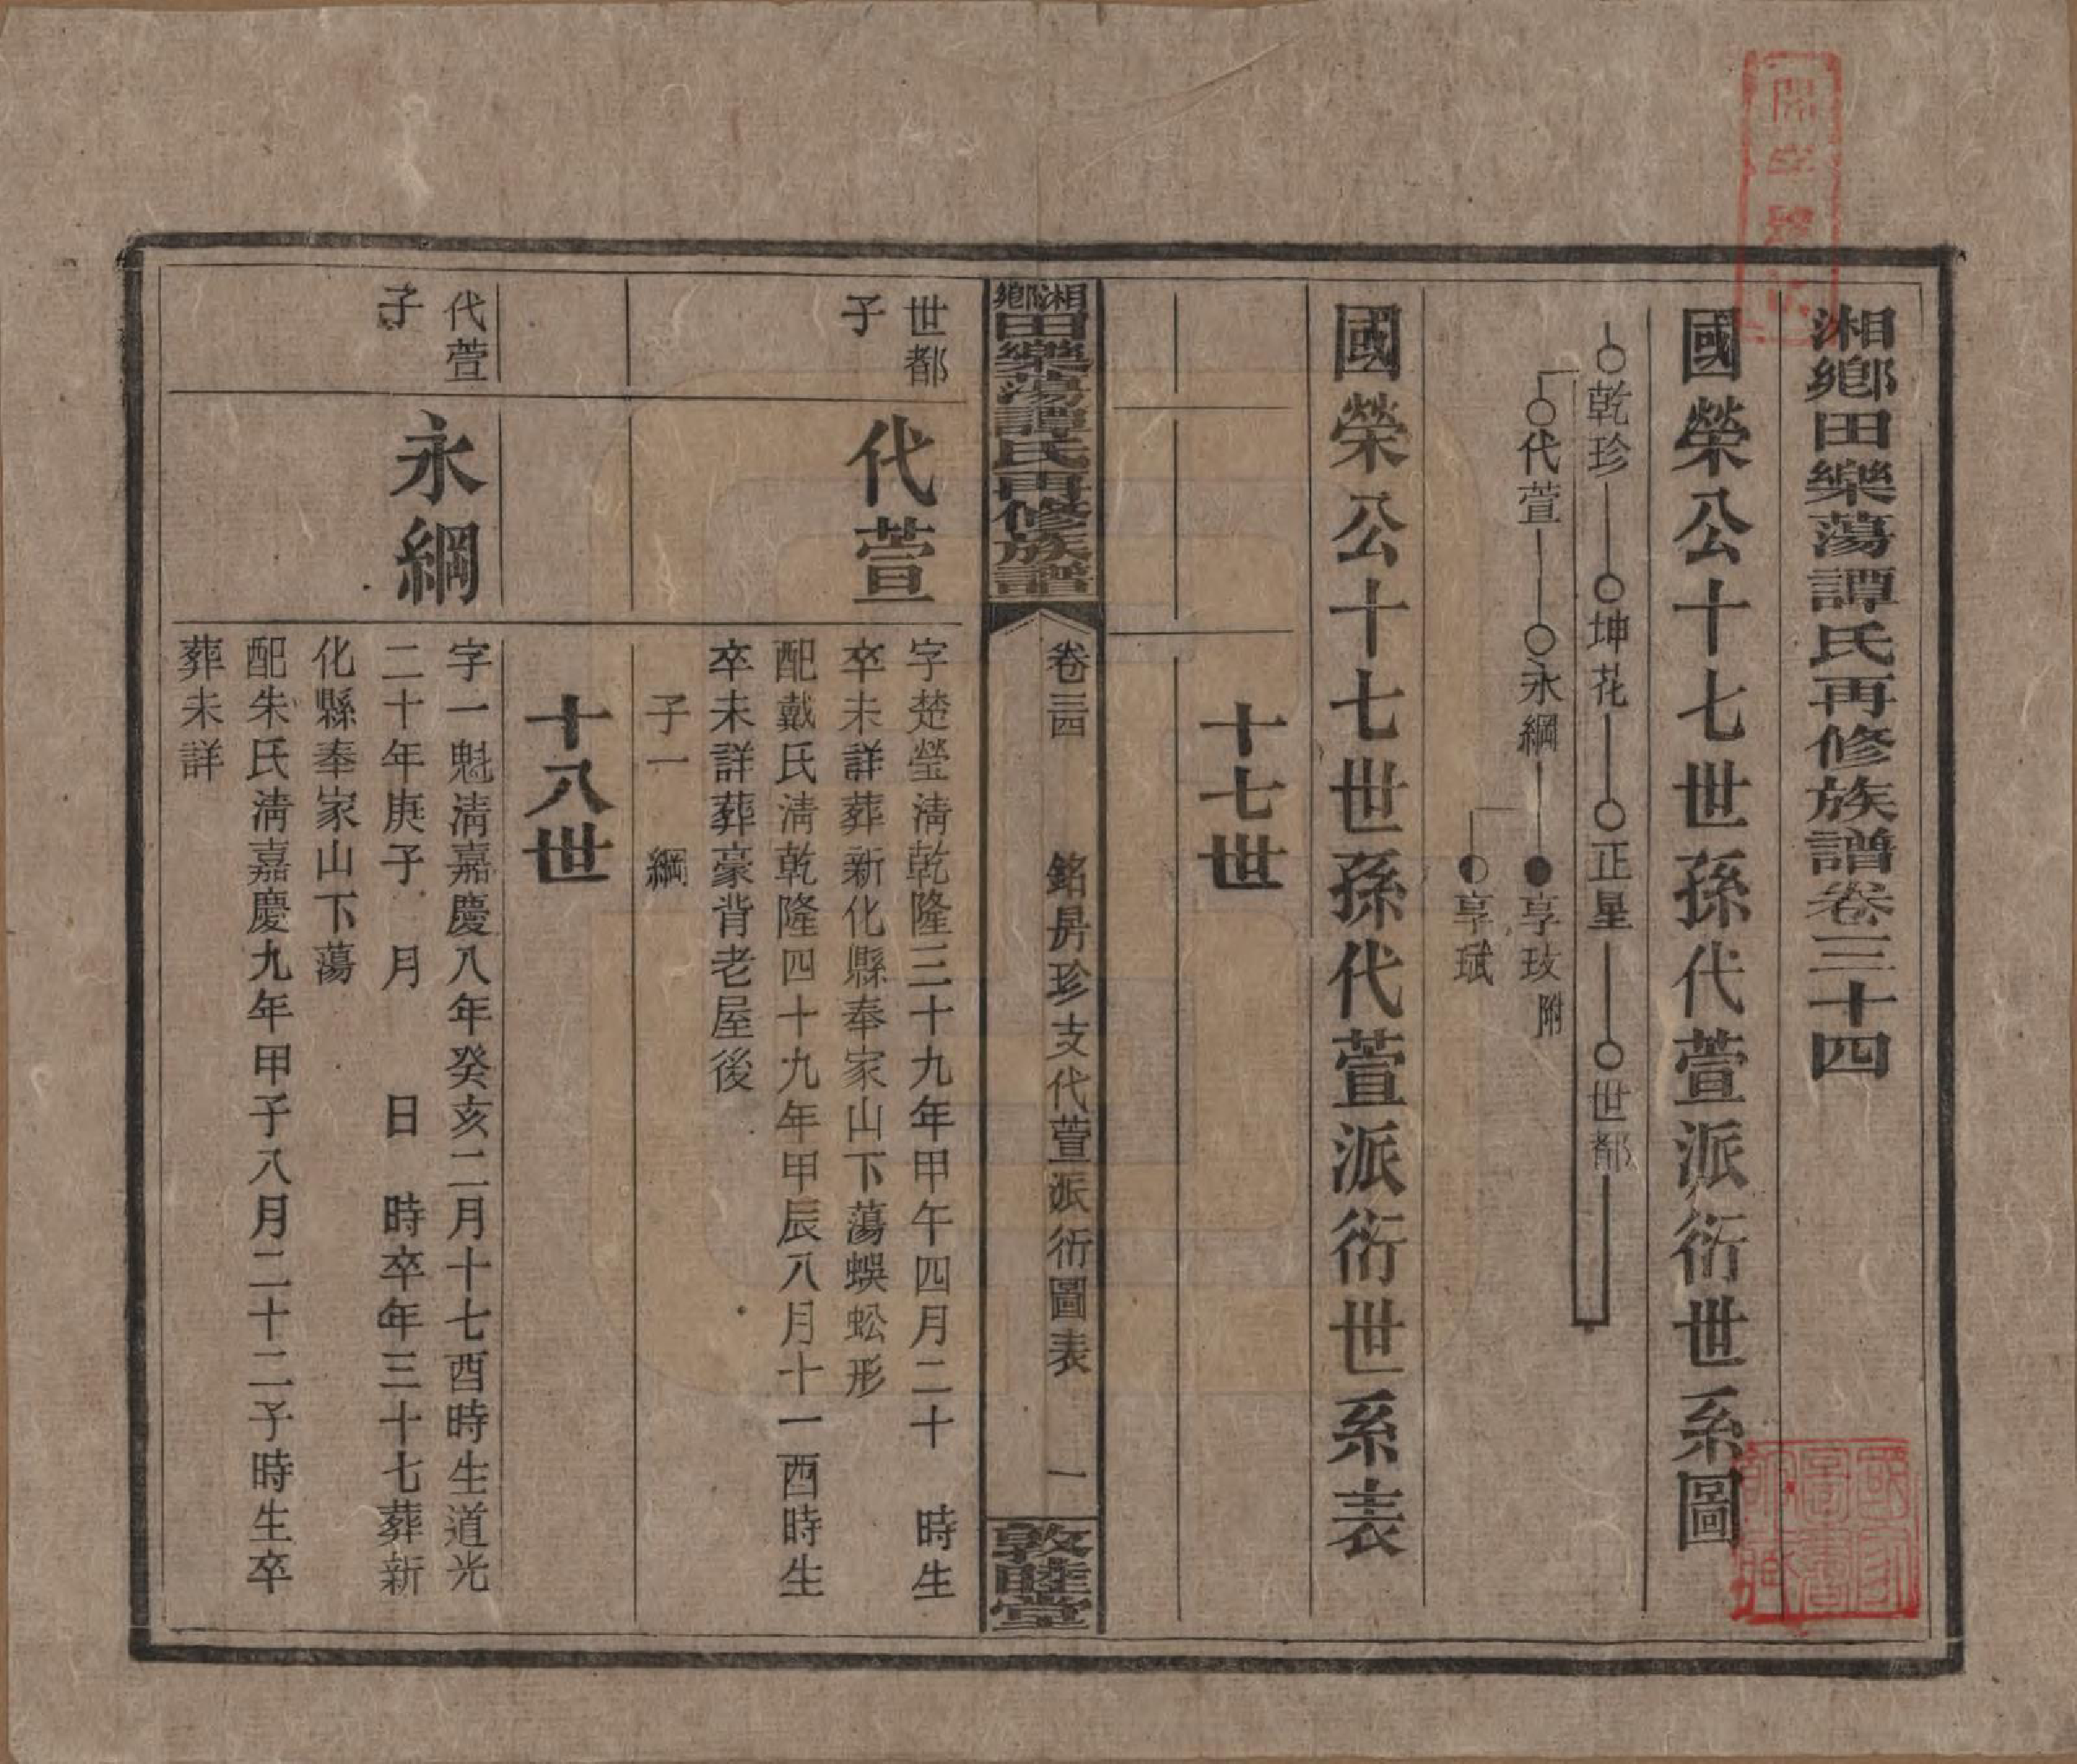 湘鄉田樂蕩譚氏再修族譜卷三十四
國榮公十七世孫代萱派衍世系圖
乾珍 坤花 正星 世都
代萱 永綱 享玫附
享珷
國榮公十七世孫代萱派衍世系表
十七世
湘鄉田樂蕩譚氏再修族譜
卷三四 銘昇珍支代萱派衍圖表 一
敦睦堂
世都
子
代萱
字楚瑩淸乾隆三十九年甲午四月二十 時生
卒未詳葬新化縣奉家山下蕩蜈蚣形
配戴氏淸乾隆四十九年甲辰八月十一酉時生
卒未詳葬豪背老屋後
子一 綱
十八世
代萱
子
永綱
字一魁淸嘉慶八年癸亥二月十七酉時生道光
二十年庚子 月 日 時卒年三十七葬新
化縣奉家山下蕩
配朱氏淸嘉慶九年甲子八月二十二子時生卒
葬未詳